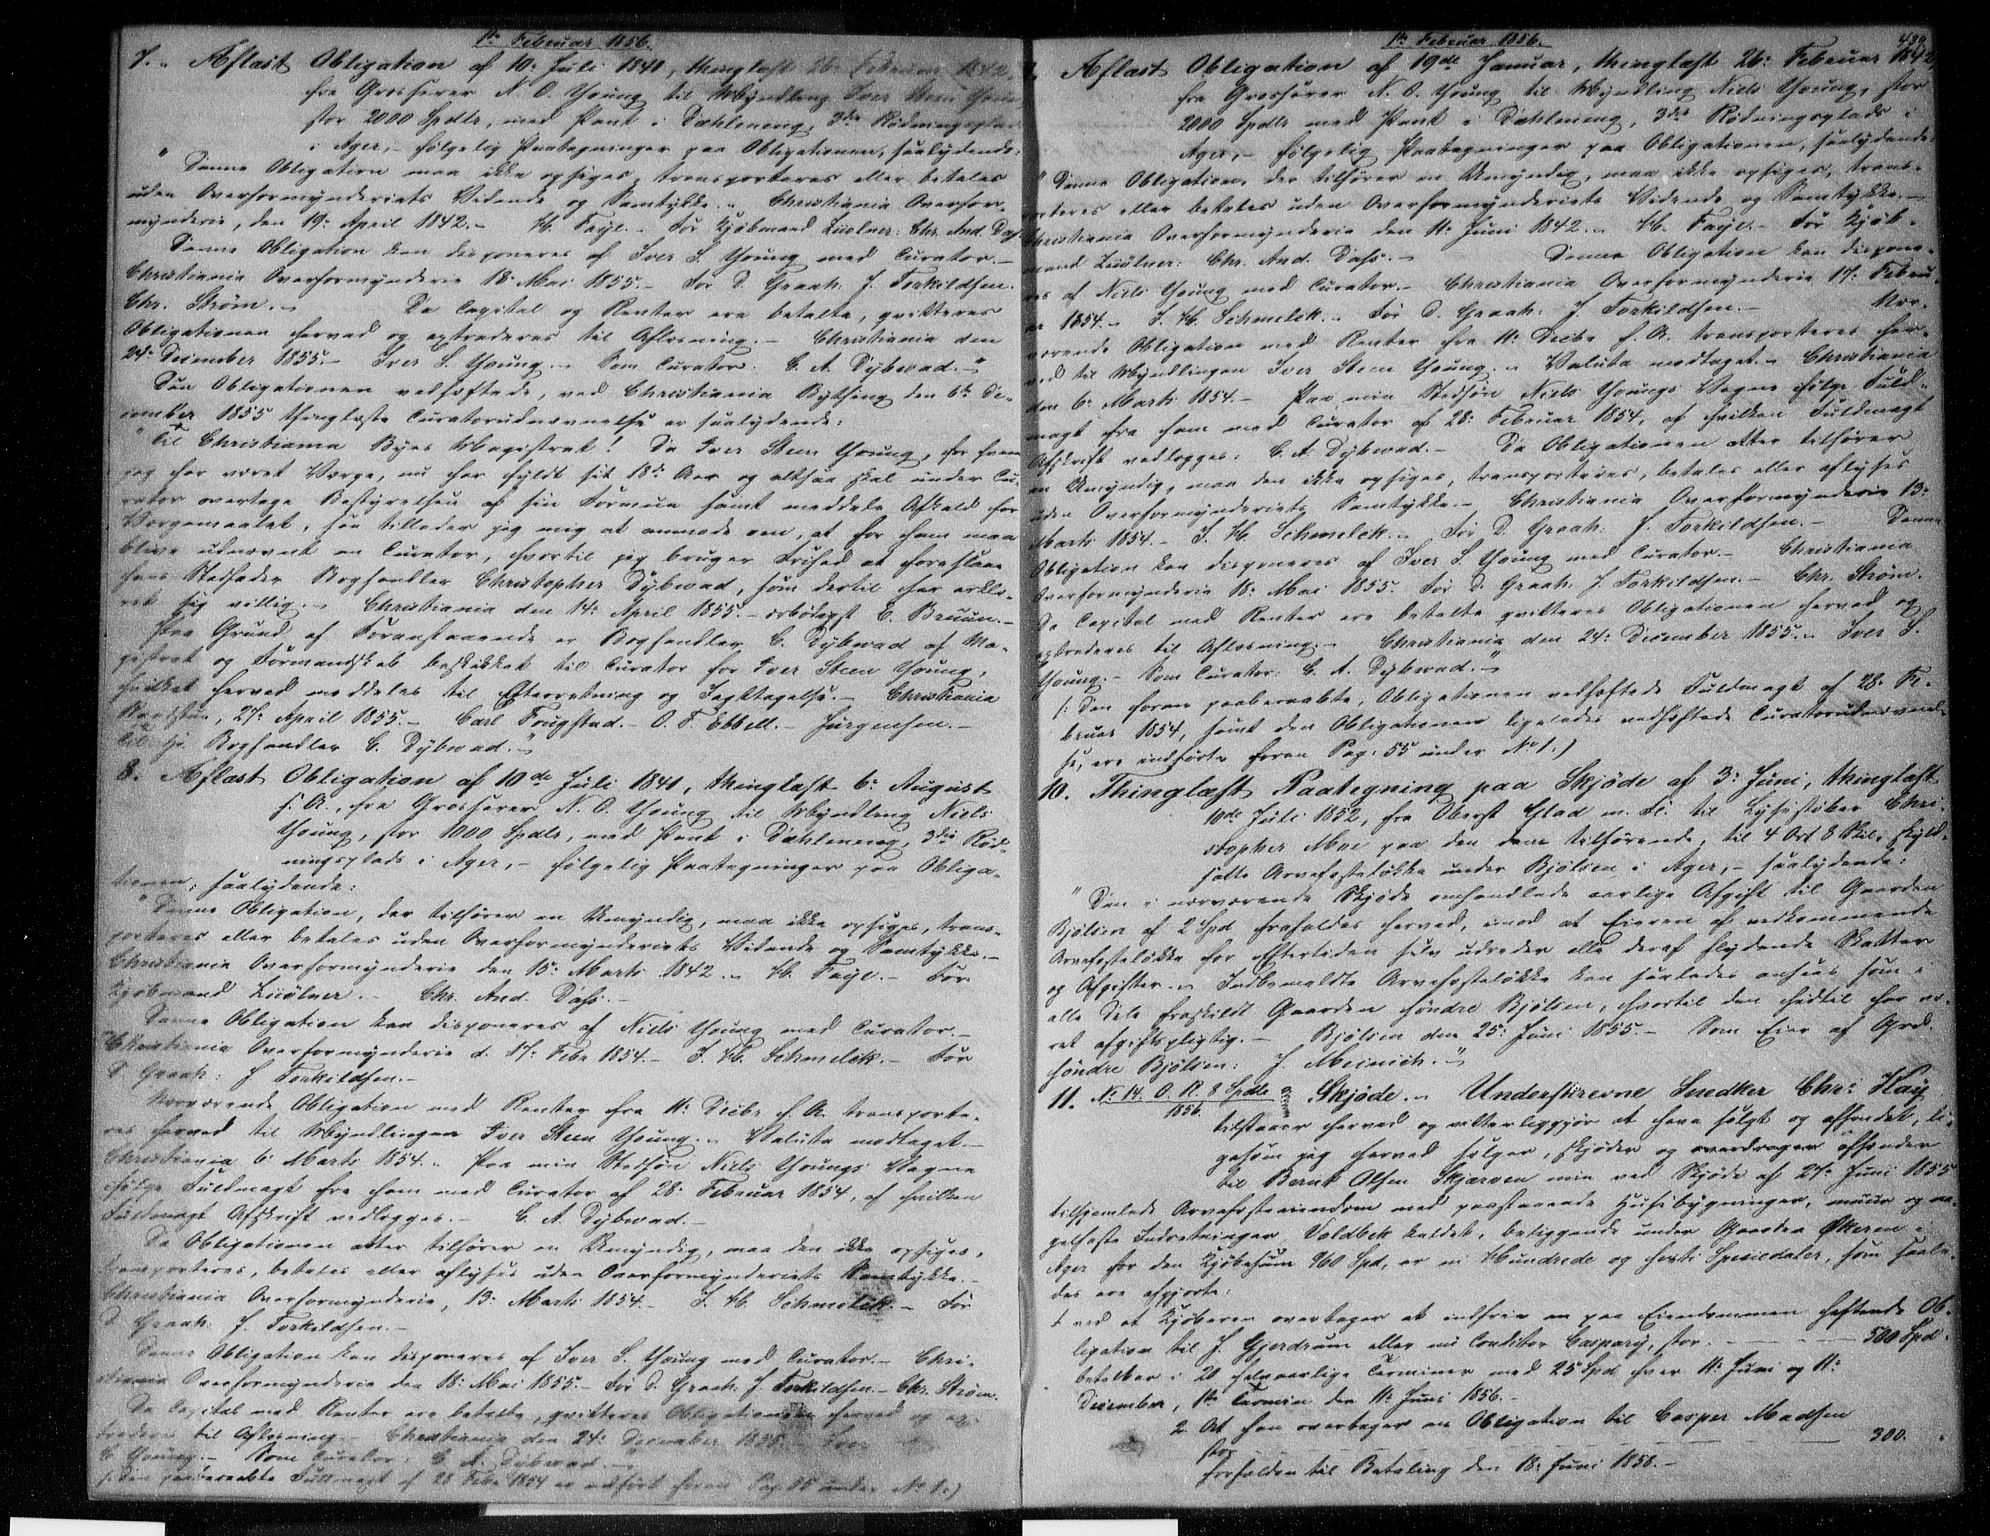 1ste Februar 1856.
7. Aflæst Obligation af 10. Juli 1841, thinglæst 26. Februar 1842,
fra Grosserer N. O. Young til Myndling Iver Steen Young
stor 2000 Spdlr, med Pant i Dæhleneng, 3die Rødningsplads
i Ager, følgelig Paategninger paa Obligationen, saalydende:
"Denne Obligation maa ikke opsiges, transporteres eller betales
uden Overformynderiets Vidende og Samtykke. Christiania Overfor-
mynderie, den 19. April 1842. H. Faye. For Kjøbmand Züølner: Chr. And. Dass.
Denne Obligation kan disponeres af Iver S. Young med Curator.
Christiania Overformynderie 18. Mai 1855. For D. Graah. J. Torkildsen.
Chr. Strøm. Da Capital og Renter ere betalte, qvitteres
Obligationen herved og extraderes til Aflæsning. Christiania den
24de December 1855. Iver S. Young. Som Curator: C. A. Dybwad."
Den Obligationen vedhæftede, ved Christiania Bything den 6te De-
cember 1855 thinglæste Curatorudnævnelse er saalydende:
"Til Christiania Byes Magistrat! Da Iver Steen Young, for hvem
jeg har været Værge, nu har fyldt sit 18de Aar og altsaa skal under Cu-
rator overtage Bestyrelsen af sin Formue samt meddele Afkald for
Værgemaalet, saa tillader jeg mig at anmode om, at for ham maa
blive udnævnt en Curator, hvortil jeg bruger Frihed at foreslaae
hans Stedfader Boghandler Christopher Dybwad, som dertil har erklæ-
ret sig villig. Christiania den 14. April 1855. ærbødigst E. Bruun.
Paa Grund af Foranstaaende er Boghandler C. Dybwad af Ma-
gistrat og Formandskab beskikket til Curator for Iver Steen Young,
hvilket herved meddeles til Efterretning og Iagttagelse. Christiania
Raadstue, 27. April 1855. Carl Fougstad. O. T. Ebbell. Jürgensen.
Til Hr. Boghandler C. Dybwad."
8. Aflæst Obligation af 10de Juli 1841, thinglæst 6. August
s. A., fra Grosserer N. O. Young til Myndling Niels
Young, stor 1000 Spdlr, med Pant i Dæhleneng, 3die Rød-
ningsplads i Ager, følgelig Paategninger paa Obliga-
tionen, saalydende:
"Denne Obligation, der tilhører en Umyndig, maa ikke opsiges, trans-
porteres eller betales uden Overformynderiets Vidende og Samtykke.
Christiania Overformynderie den 15. Marts 1842. H. Faye. For
Kjøbmand Züølner. Chr. And. Dass.
Denne Obligation kan disponeres af Niels Young med Curator.
Christiania Overformynderie d. 17. Febr 1854. J. H. Schmelck. For
D. Graah: J Torkildsen.
Nærværende Obligation med Renter fra 11. Decbr f. A. transporte-
res herved til Myndlingen Iver Steen Young. Valuta modtaget.
Christiania 6. Marts 1854. Paa min Stedsøn Niels Youngs Vegne
ifølge Fuldmagt fra ham med Curator af 28. Februar 1854, af hvilken
Fuldmagt Afskrift vedlægges. C. A. Dybwad.
Da Obligationen atter tilhører en Umyndig, maa den ikke opsiges,
transporteres, betales eller aflyses uden Overformynderiets Samtykke.
Christiania Overformynderie, 13. Marts 1854. J. H. Schmelck. For
D. Graah: J. Torkildsen.
Denne Obligation kan disponeres af Iver S. Young med Curator. Chri-
stiania Overformynderie den 18. Mai 1855. For D. Graah. J. Torkildsen. Chr. Strøm.
Da Capital med Renter ere betalte, qvitteres Obligationen herved og ex-
traderes til Aflæsning. Christiania den 24. December 1855. Iver
S. Young. Som Curator: C. A. Dybwad."
/: Den paaberaabte Fuldmagt af 28 Febr 1854 er indført foran Pag. 55 under No 1.:/
1ste Februar 1856.
439
Aflæst Obligation af 19de Januar, thinglæst 26. Februar 1842,
fra Grosserer N. O. Young til Myndling Niels Young, stor
2000 Spdlr med Pant i Dæhleneng, 3die Rødningsplads i
Ager, følgelig Paategninger paa Obligationen, saalydende:
"Denne Obligation, der tilhører en Umyndig, maa ikke opsiges, trans-
porteres eller betales uden Overformynderiets Vidende og Samtykke.
Christiania Overformynderie den 11. Juni 1842. H. Faye. For Kjøb-
mand Züølner: Chr. And. Dass. Denne Obligation kan dispone-
res af Niels Young med Curator. Christiania Overformynderie 17. Febru-
ar 1854. J. H. Schmelck. For D. Graah. J Torkildsen. Nær-
værende Obligation med Renter fra 11. Decbr f. A. transporteres her-
ved til Myndlingen Iver Steen Young. Valuta modtaget. Christiania
den 6. Marts 1854. Paa min Stedsøn Niels Youngs Vegne ifølge Fuld-
magt fra ham med Curator af 28. Februar 1854, af hvilken Fuldmagt
Afskrift vedlægges: C. A. Dybwad. Da Obligationen atter tilhører
en Umyndig, maa den ikke opsiges, transporteres, betales eller aflyses
uden Overformynderiets Samtykke. Christiania Overformynderie 13.
Marts 1854. J. H. Schmelck. For D. Graah. J. Torkildsen. Denne
Obligation kan disponeres af Iver S. Young med Curator. Christiania
Overformynderie 18. Mai 1855. For D. Graah. J Torkildsen. Chr. Strøm.
Da Capital med Renter ere betalte qvitteres Obligationen herved og
extraderes til Aflæsning. Christiania den 24. December 1855. Iver S.
Young. Som Curator: C. A. Dybwad."
/: Den foran paaberaabte, Obligationen vedhæftede Fuldmagt af 28. Fe-
bruar 1854, samt den Obligationen ligeledes vedhæftede Curatorudnævnel-
se, ere indførte foran Pag. 55 under No 1.:/
10. Thinglæst Paategning paa Skjøde af 3. Juni, thinglæst
10de Juli 1852, fra Oberst Glad m. Fl. til Lysestøber Chri-
stopher Moe paa den dem tilhørende, til 4 Ort 8 Skil. skyld-
satte Arvefæsteløkke under Bjølsen i Ager, saalydende:
"Den i nærværende Skjøde omhandlede aarlige Afgift til Gaarden
Bjølsen af 2 Spd frafaldes herved, imod at Eieren af vedkommende
Arvefæsteløkke for Eftertiden selv udreder alle deraf flydende Skatter
og Afgifter. Indbemeldte Arvefæsteløkke kan saaledes ansees som i
alle Dele fraskildt Gaarden søndre Bjølsen, hvortil den hidtil har væ-
ret afgiftspligtig. Bjølsen den 25. Juni 1855. Som Eier af Grd.
søndre Bjølsen: J. Meinich."
11. No 14. O. R. 8 Spdlr 1856. Skjøde. Underskrevne Snedker Chr. Hay
tilstaaer herved og vitterliggjør at have solgt og afhændet, li-
gesom jeg herved sælger, skjøder og overdrager afhænder
til Bernt Olsen Skjærven min ved Skjøde af 27. Juni 1855
tilhjemlede Arvefæsteeiendom med paastaaende Huusbygninger, muur og na-
gelfaste Indretninger, Voldbek kaldet, beliggende under Gaarden Økeren i
Ager for den Kjøbesum 960 Spd, er ni Hundrede og sexti Speciedaler, som saale-
des ere afgjorte:
1 ved at Kjøberen overtager at indfrie en paa Eiendommen heftende Ob-
ligation til J. Gjerdrum eller nu Conditor Caspary, stor 500 Spd.
betalbar i 20 halvaarlige Terminer med 25 Spd hver 11. Juni og 11.
December, 1ste Termin den 11. Juni 1856.
2. At han overtager en Obligation til Casper Madsen
stor 300.
forfalden til Betaling den 18. Juni 1858.